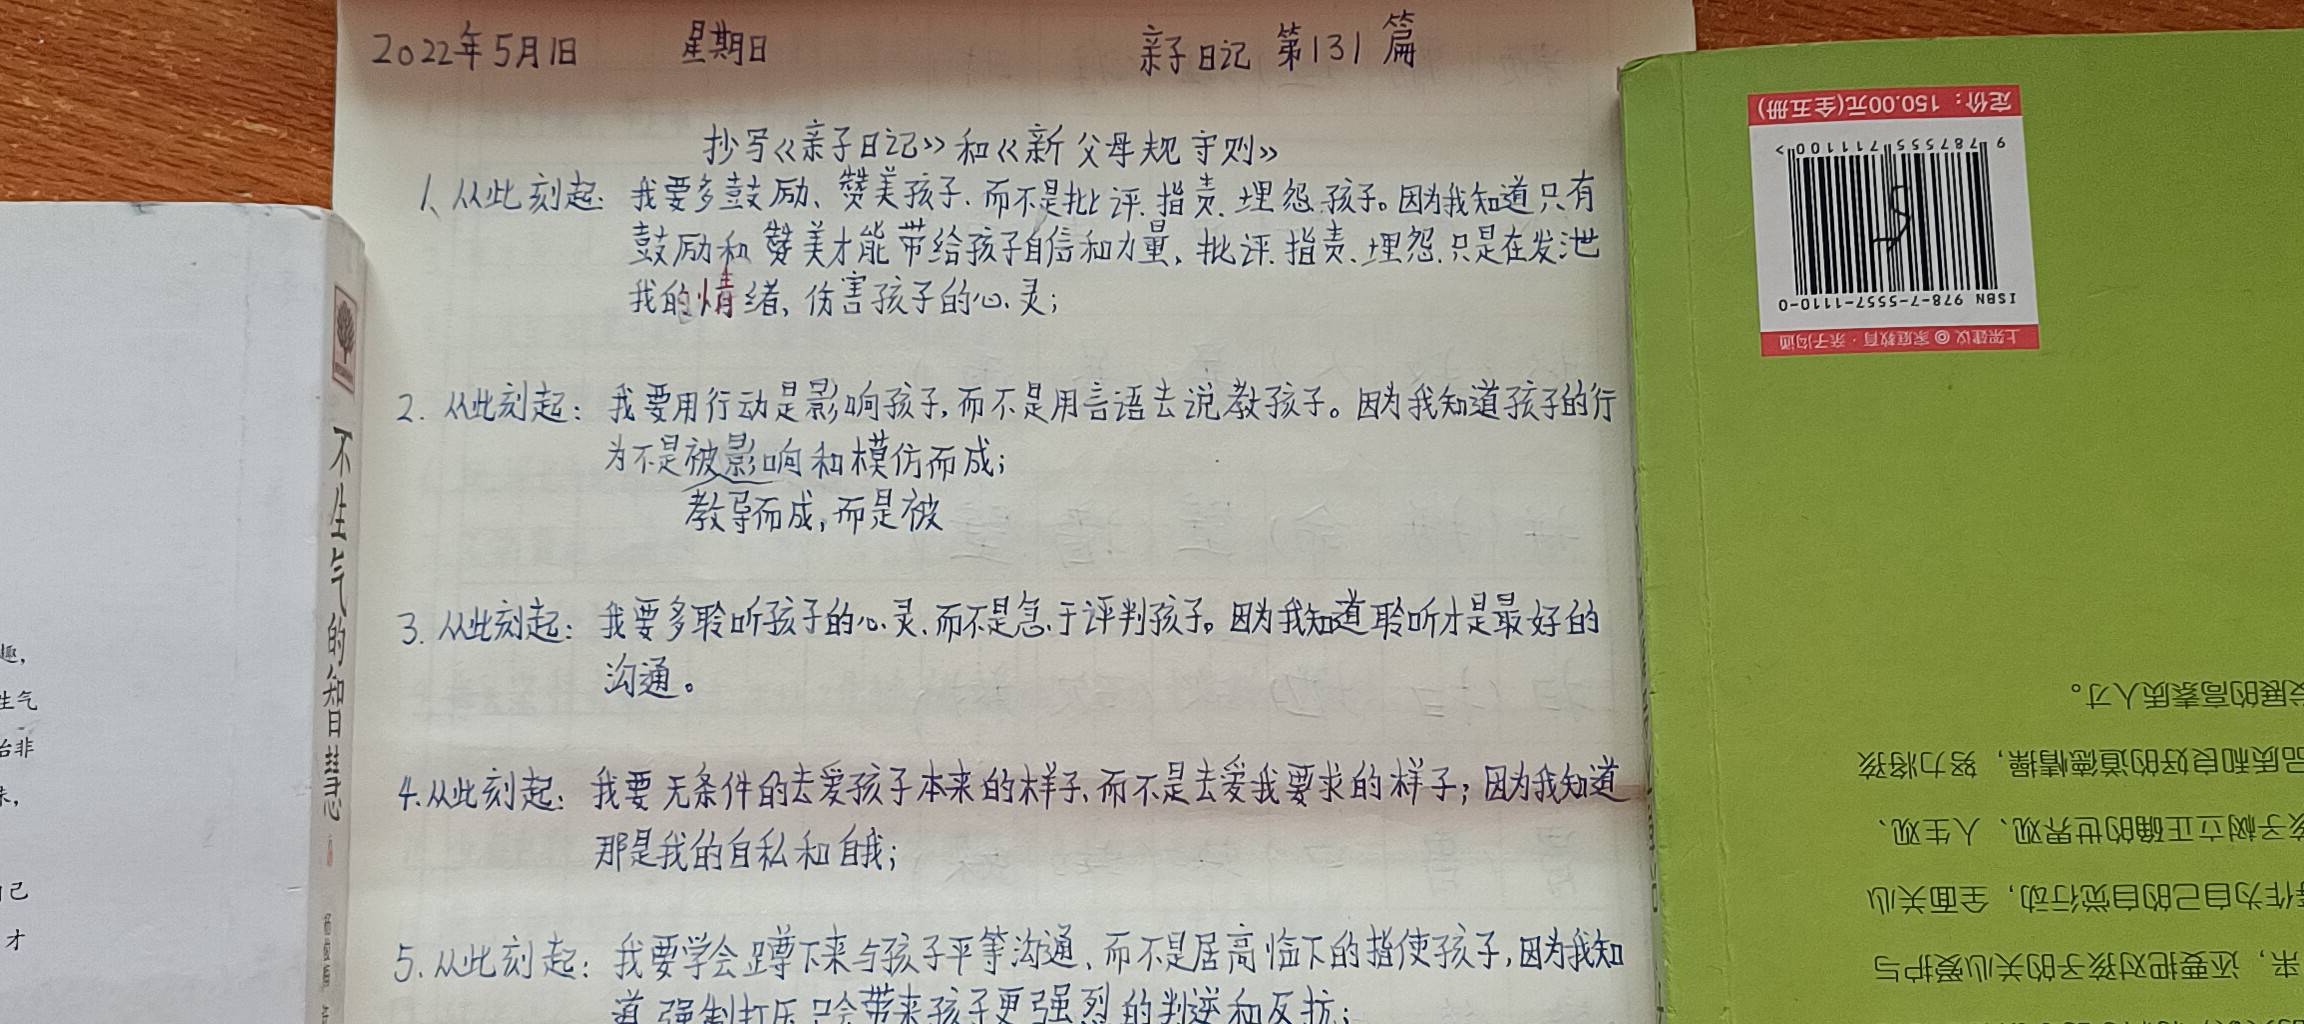 2022年5月1日 星期日 亲子日记 第131篇
抄写《亲子日记》和《新父母规守则》
1、从此刻起: 我要多鼓励、赞美孩子、而不是批评.指责.埋怨.孩子。因为我知道只有
鼓励和赞美才能带给孩子自信和力量、批评.指责.埋怨.只是在发泄
我的情绪, 伤害孩子的心灵;
2. 从此刻起: 我要用行动是影响孩子,而不是用言语去说教孩子。因为我知道孩子的行
为不是被影响和模仿而成;
教导而成,而是被
3. 从此刻起: 我要多聆听孩子的心灵.而不是急于评判孩子。因为我知道聆听才是最好的
沟通。
4.从此刻起: 我要无条件的去爱孩子本来的样子、而不是去爱我要求的样子;因为我知道
那是我的自私和自我;
5.从此刻起: 我要学会蹲下来与孩子平等沟通、而不是居高临下的指使孩子,因为我知
道 强制打压只会带来孩子更强烈的判逆和反抗;
不生气的智慧
趣,
生气
治非
己
才
定价:150.00元(全五册)
9 787555 711100>
ISBN 978-7-5557-1110-0
上架建议◎家庭教育·亲子沟通
发展的高素质人才。
品质和良好的道德情操,努力将孩
孩子树立正确的世界观、人生观、
作为自己的自觉行动,全面关心
来,还要把对孩子的关心爱护与